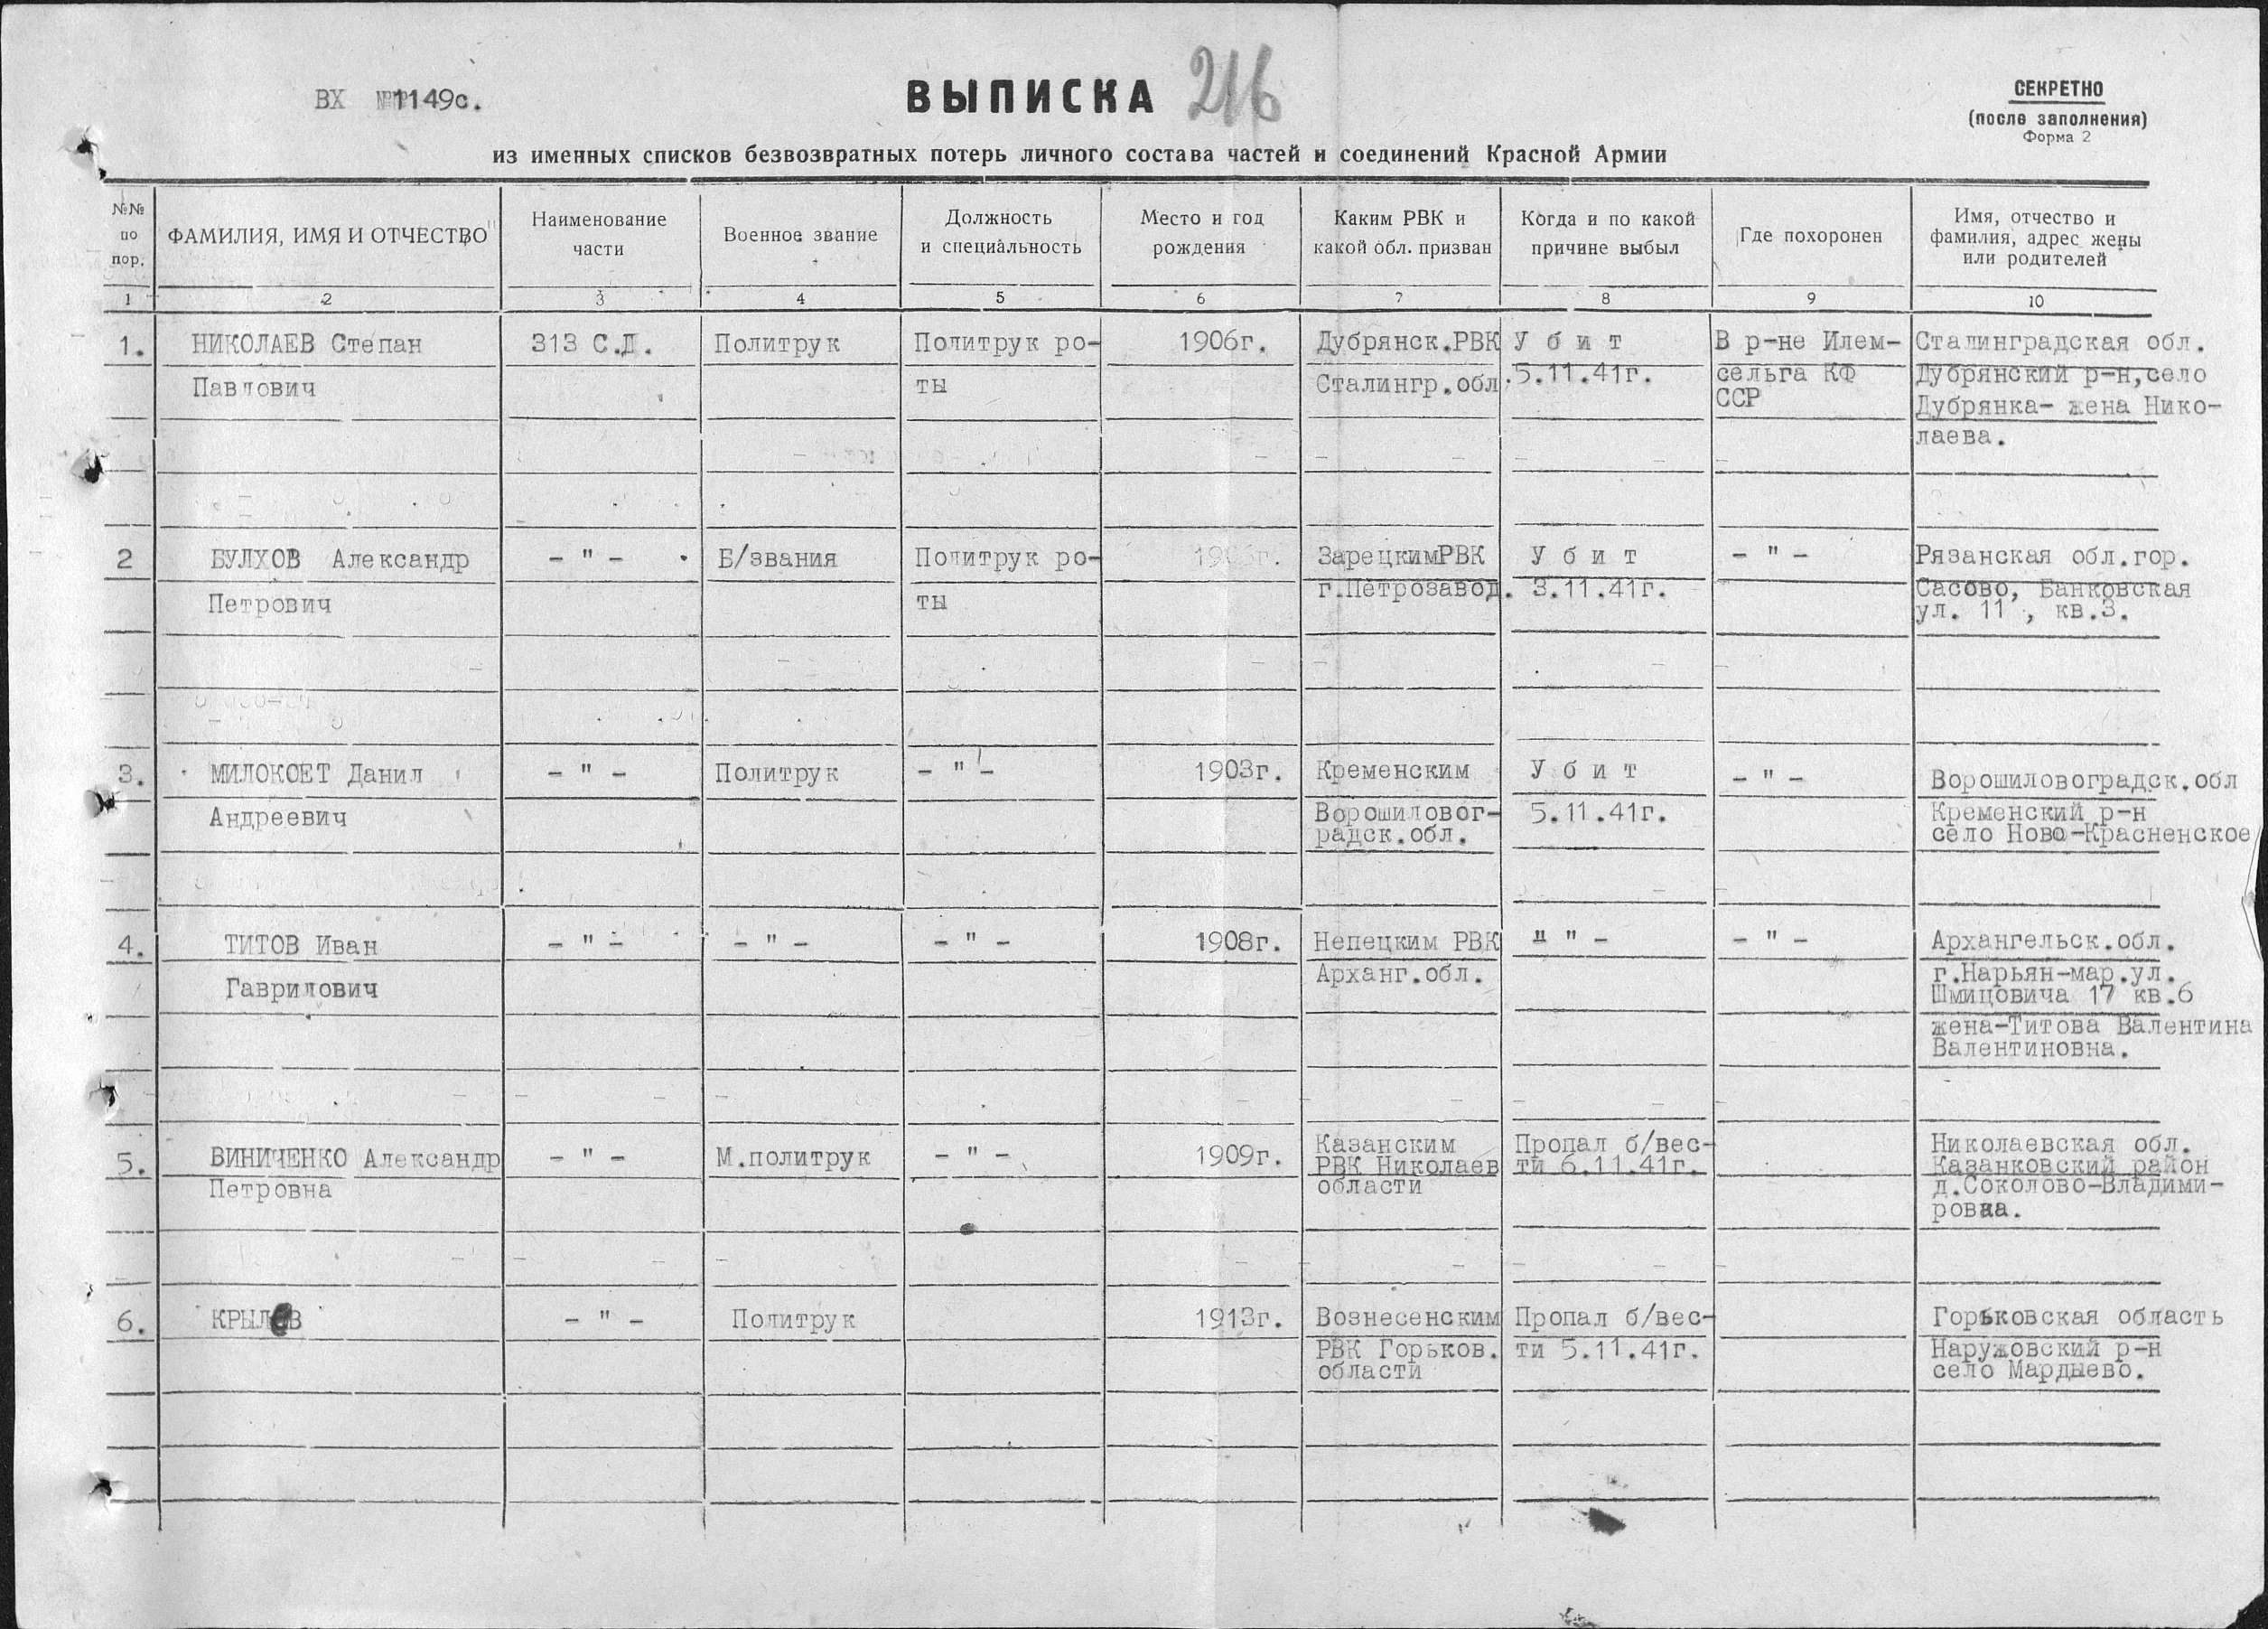 ВХ № 1149с.
ВЫПИСКА 216
СЕКРЕТНО
(после заполнения)
Форма 2
из именных списков безвозвратных потерь личного состава частей и соединений Красной Армии
№№
по
пор.
ФАМИЛИЯ, ИМЯ И ОТЧЕСТВО
Наименование
части
Военное звание
Должность
и специальность
Место и год
рождения
Каким РВК и
какой обл. призван
Когда и по какой
причине выбыл
Где похоронен
Имя, отчество и
фамилия, адрес жены
или родителей
1 2 3 4 5 6 7 8 9 10
1.
НИКОЛАЕВ Степан
Павлович
313 С.Д.
Политрук
Политрук ро-
ты
1906г.
Дубрянск.РВК
Сталингр.обл.
У б и т
5.11.41г.
В р-не Илем-
сельга КФ
ССР
Сталинградская обл.
Дубрянский р-н,село
Дубрянка- жена Нико-
лаева.
2
БУЛХОВ Александр
Петрович
- " -
Б/звания
Политрук ро-
ты
ЗарецкимРВК
г.Петрозавод.
У б и т
3.11.41г.
- " -
Рязанская обл.гор.
Сасово, Банковская
ул. 11 , кв.3.
3.
МИЛОКОЕТ Данил
Андреевич
- " -
Политрук
- " -
1903г.
Кременским
Ворошиловог-
радск.обл.
У б и т
5.11.41г.
- " -
Ворошиловоградск.обл
Кременский р-н
село Ново-Красненское
4.
ТИТОВ Иван
Гаврилович
- " -
- " -
- " -
1908г.
Непецким РВК
Арханг.обл.
" " -
- " -
Архангельск.обл.
г.Нарьян-мар.ул.
Шмицовича 17 кв.6
жена-Титова Валентина
Валентиновна.
5.
ВИНИЧЕНКО Александр
Петровна
- " -
М.политрук
- " -
1909г.
Казанским
РВК Николаев
области
Пропал б/вес-
ти 6.11.41г.
Николаевская обл.
Казанковский район
д.Соколово-Владими-
ровка.
6.
КРЫЛОВ
- " -
Политрук
1913г.
Вознесенским
РВК Горьков.
области
Пропал б/вес-
ти 5.11.41г.
Горьковская область
Наружовский р-н
село Мардыево.